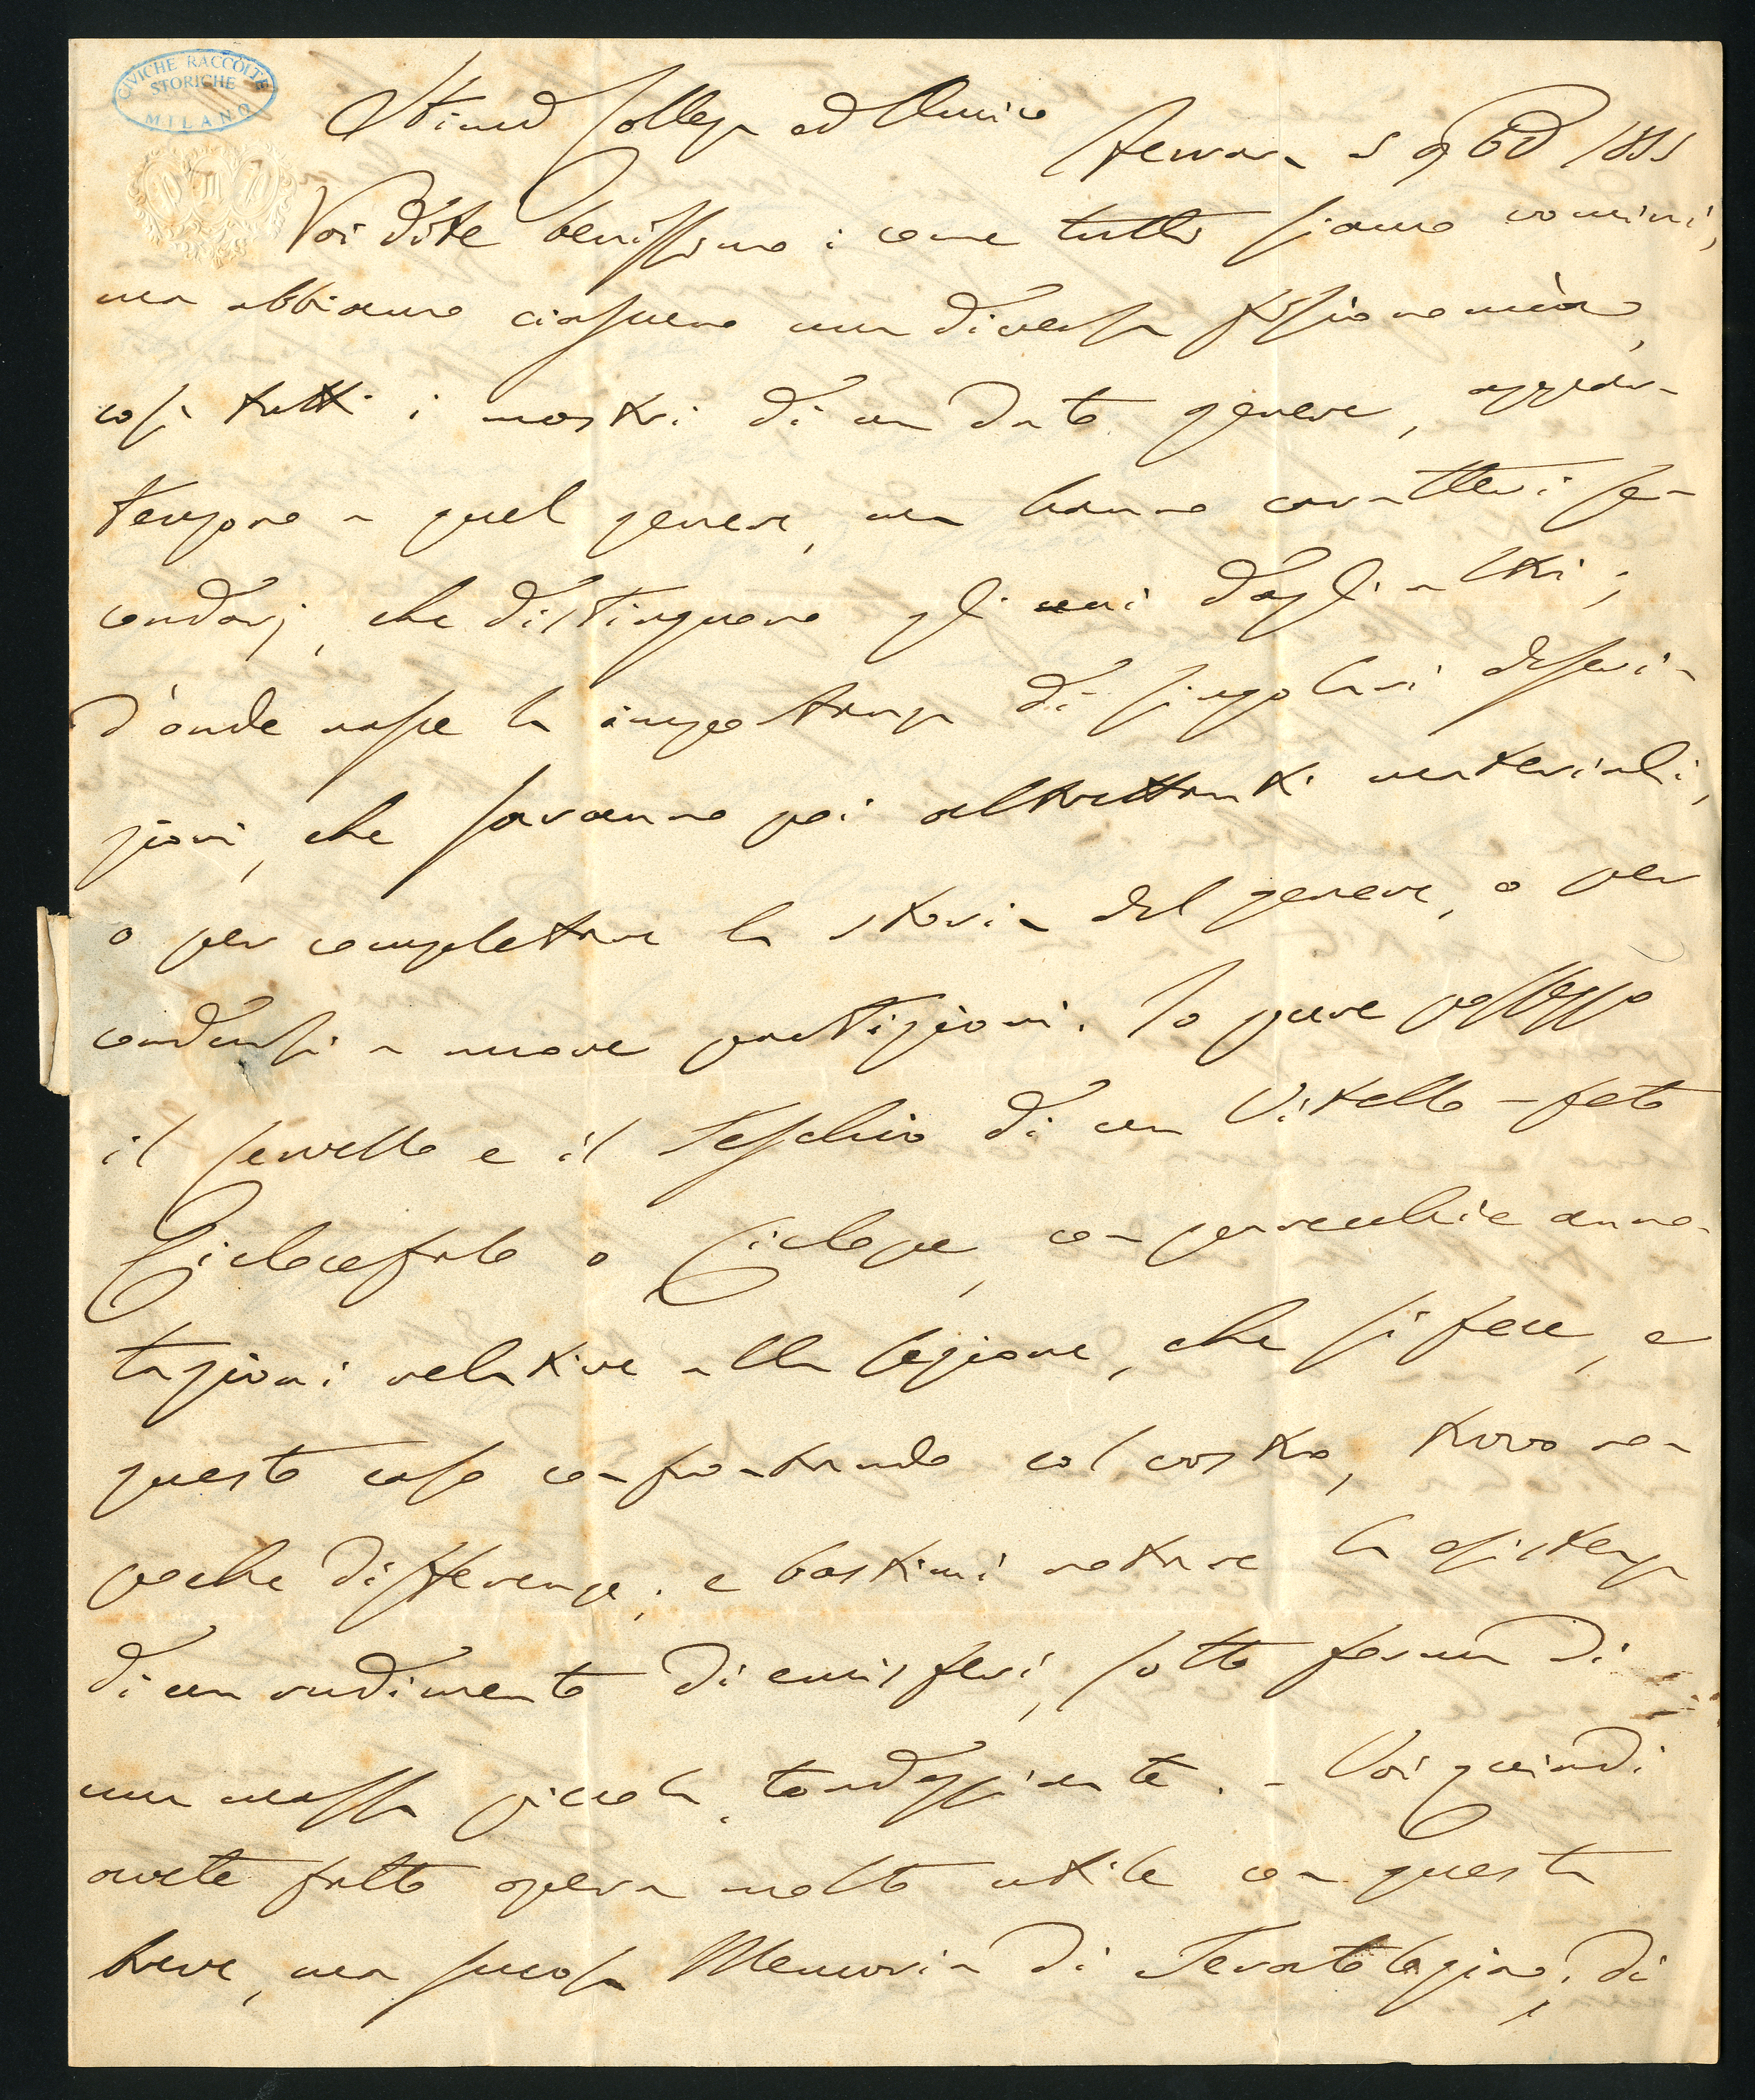 CIVICHE RACCOLTE
STORICHE
MILANO
Stimo Collega ed Amico
Ferrara 5 9bre 1855
Voi dite benissimo: come tutti siamo uomini,
ma abbiamo ciascuno una diversa fisionomia,
così tutti i mostri di un dato genere, appar-
tengono a quel genere, ma hanno caratteri se-
condarj, che distinguono gli uni dagli altri;
d'onde nasce la importanza di singolari descri-
zioni, che saranno poi altrettanti materiali,
o per completare la storia del genere, o per
condursi a nuove partizioni. Io pure posseggo
il cervello e il teschio di un Vitello-feto
Ciclocefalo o Ciclope, con parecchie anno-
tazioni relative alla sezione, che si fece, e
questo caso confrontando col vostro, trovo non
poche differenze; e bastimi notare la esistenza
di un rudimento di emisferi, sotto forma di
una massa piccola, tondeggiante. - Voi quindi
avete fatto opera molto utile con questa
breve, ma sucosa Memoria di Teratologia; di